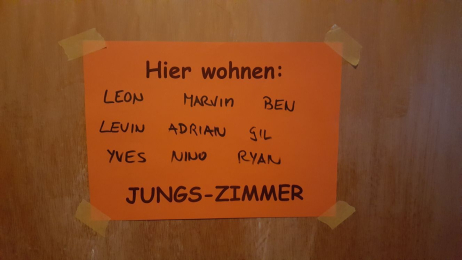 Hier wohnen:
LEON MARVIN BEN
LEVIN ADRIAN GIL
YVES NINO RYAN
JUNGS-ZIMMER